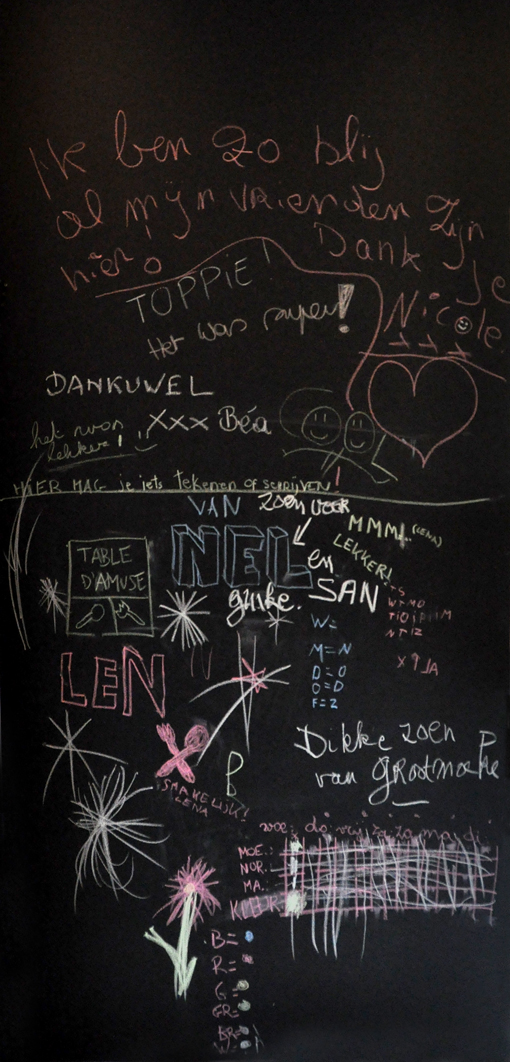 Ik ben zo blij
al mijn vrienden zijn
hier
Dank je
Nicole
TOPPIE!
Het was super!
DANKUWEL
xxx Béa
het was
lekker!
HIER MAG je iets tekenen of SCHRIJVEN!
VAN
zoen voor
NEL
en
SAN
MMM!.. (LENA)
LEKKER!
TABLE
D'AMUSE
W=
M=N
D=O
O=D
F=Z
x9JA
LEN
SMAKELIJK!
LENA
B
Dikke zoen
van GROOTMOEKE
woe: do vrij za zo ma di
MOE.:
NOR.:
MA.:
KLEUR
B=
R=
G=
GR=
BR=
W=